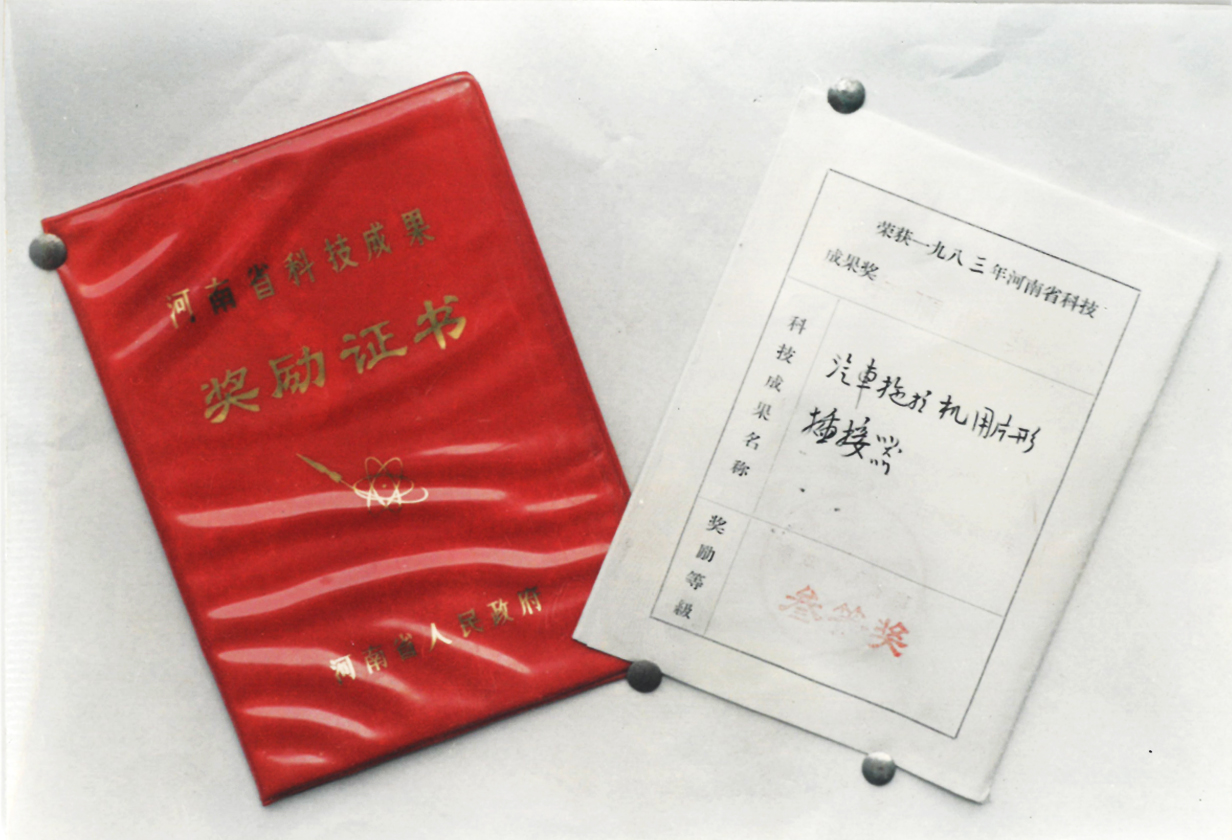 河南省科技成果
奖励证书
河南省人民政府
荣获一九八三年河南省科技
成果奖
科技成果名称
汽車拖拉机用片形
插接器
奖励等级
叁等奖